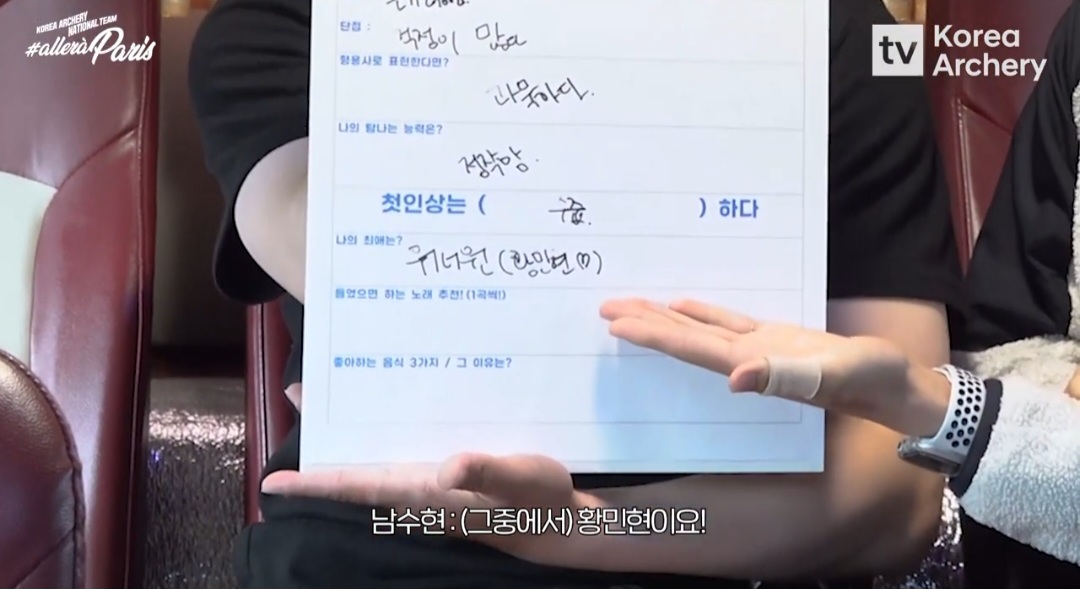 KOREA ARCHERY
NATIONAL TEAM
#alleràParis
tv Korea
Archery
단점 :
걱정이 많다
형용사로 표현한다면?
과묵하다.
나의 탐나는 능력은?
정작망.
첫인상는 ( ) 하다
나의 최애는?
워너원 (황민현♡)
들었으면 하는 노래 추천! (1곡씩!)
좋아하는 음식 3가지 / 그 이유는?
남수현 : (그중에서) 황민현이요!